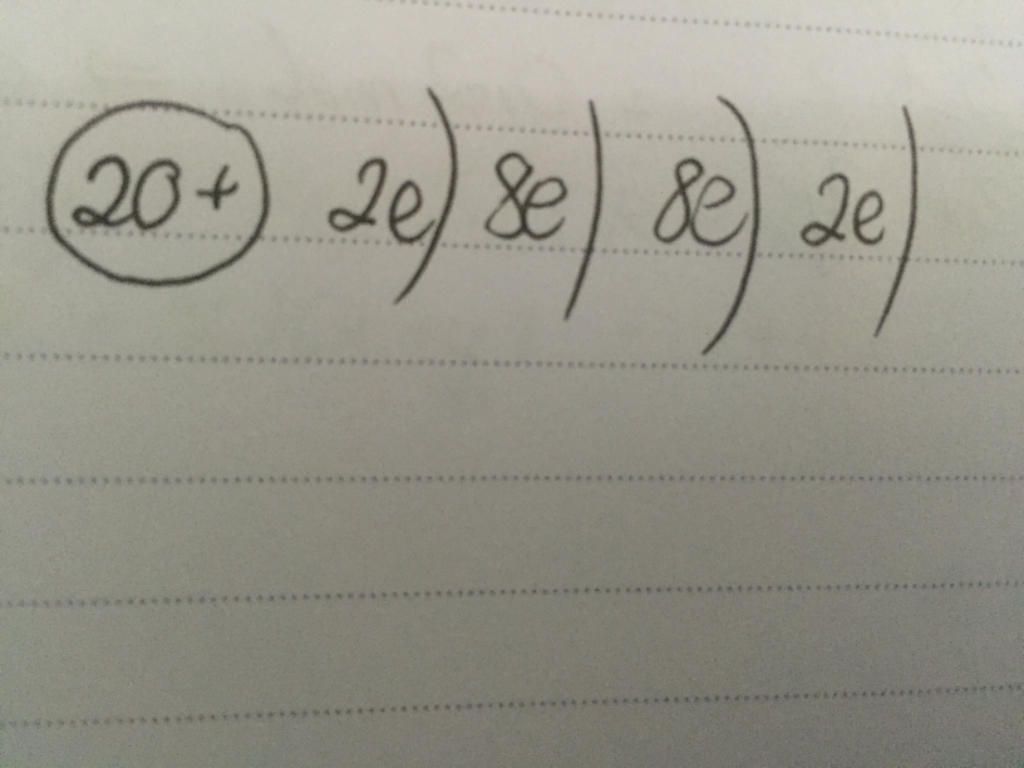 20+ 2e) 8e) 8e) 2e)